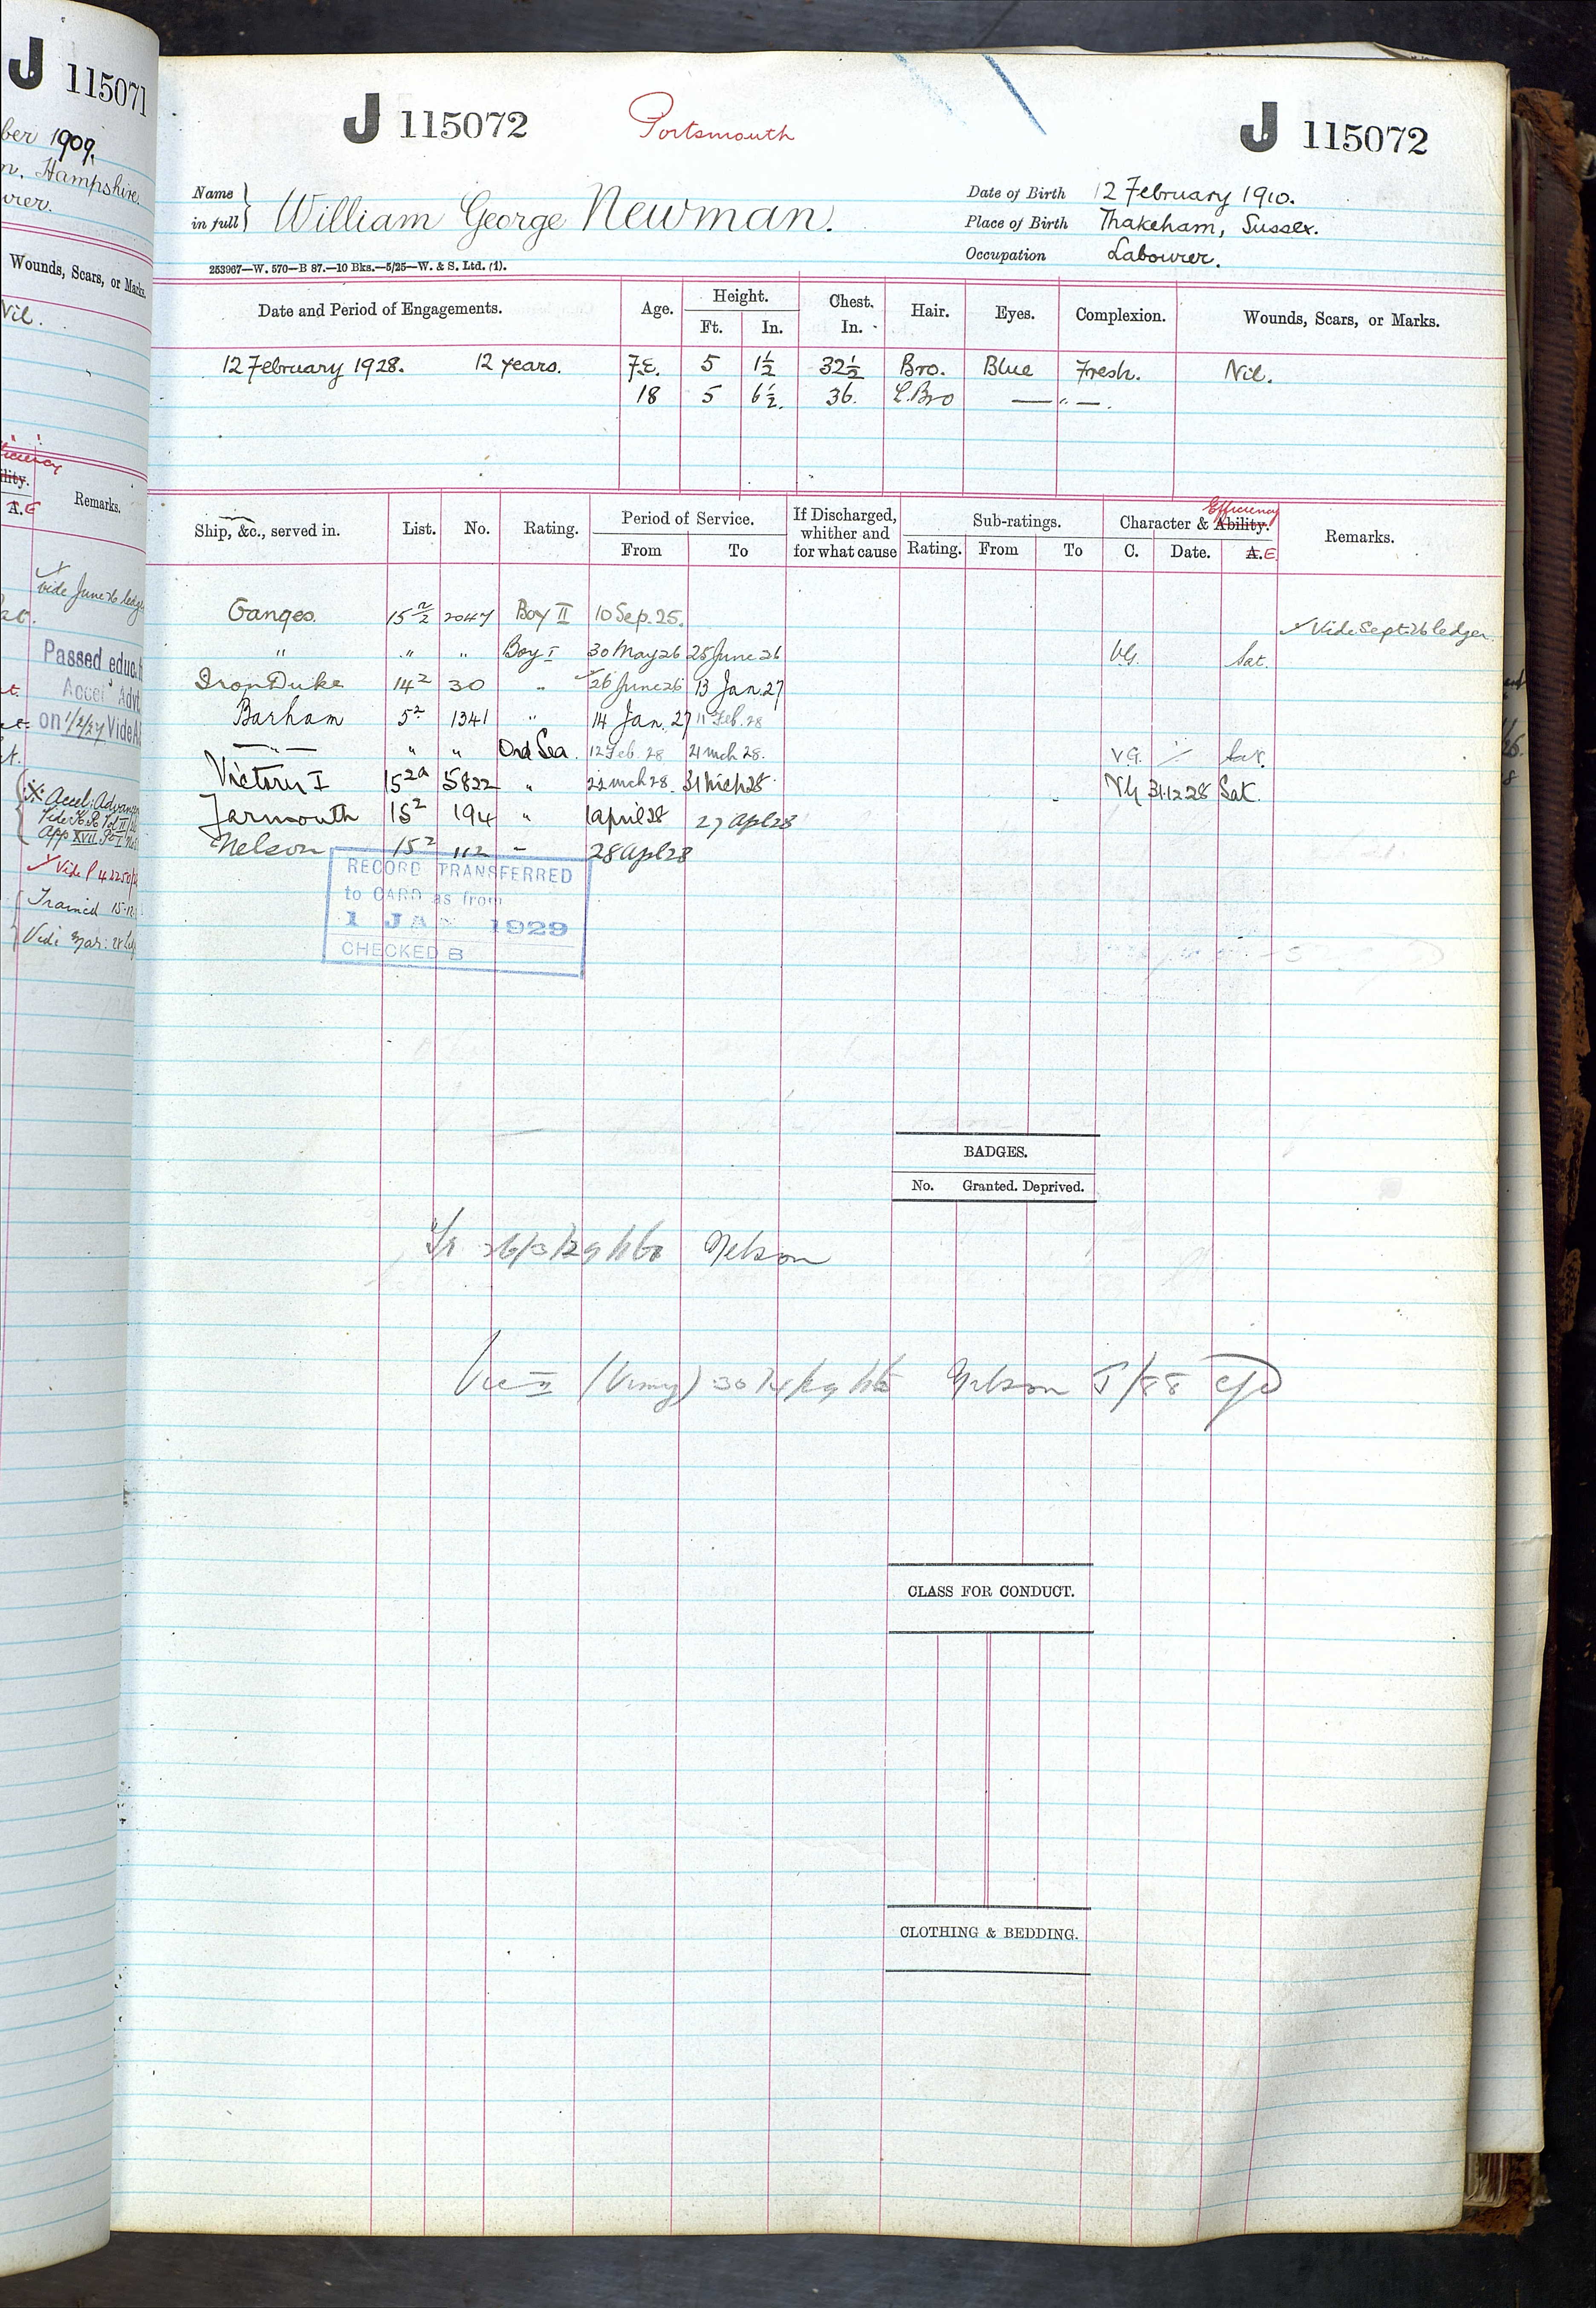 J 115071
ber 1909.
n, Hampshire.
Wounds, Scars, or Marks.
Nil.
Remarks.
A.E
vide June 26 ledg
Passed educ
Accel Advt
on 1/2/27 Vide A
Accel: Advan
App XVII Pt I
Trained 15.12
Vide Mar: 28
J 115072 Portsmouth J 115072
Name in full } William George Newman.
Date of Birth 12 February 1910.
Place of Birth Thakeham, Sussex.
Occupation Labourer.
253967—W. 570—B 87.—10 Bks.—5/25—W. & S. Ltd. (1).
Date and Period of Engagements. Age. Height. Chest. Hair. Eyes. Complexion. Wounds, Scars, or Marks.
Ft. In. In.
12 February 1928. 12 years. F.E. 5 1½ 32½ Bro. Blue Fresh. Nil.
18 5 6½. 36. L.Bro — " —.
Efficiency
Ship, &c., served in. List. No. Rating. Period of Service. If Discharged, whither and for what cause Sub-ratings. Character & Ability. Remarks.
From To Rating. From To C. Date. A.E
Ganges. 15 2/2 2047 Boy II 10 Sep. 25.
✓ Vide Sept 26 ledger.
" " " Boy I 30 May 26 25 June 26 VG. Sat.
Iron Duke 14² 30 " 26 June 26 13 Jan. 27
Barham 5² 1341 " 14 Jan. 27 11 Feb. 28
— " — " " Ord Sea. 12 Feb. 28 21 mch 28. V.G. Sat.
Victory I 15²ᵃ 5822 " 22 mch 28. 31 Mch 28 VG 31.12.28 Sat.
Yarmouth 15² 194 " 1 April 28 27 Apl 28
Nelson 15² 112 – 28 Apl 28
RECORD TRANSFERRED
to CARD as from
1 JAN 1929
CHECKED B
BADGES.
No. Granted. Deprived.
Nelson
Vic II (Vimy) 30/4/29 Nelson J/88
CLASS FOR CONDUCT.
CLOTHING & BEDDING.